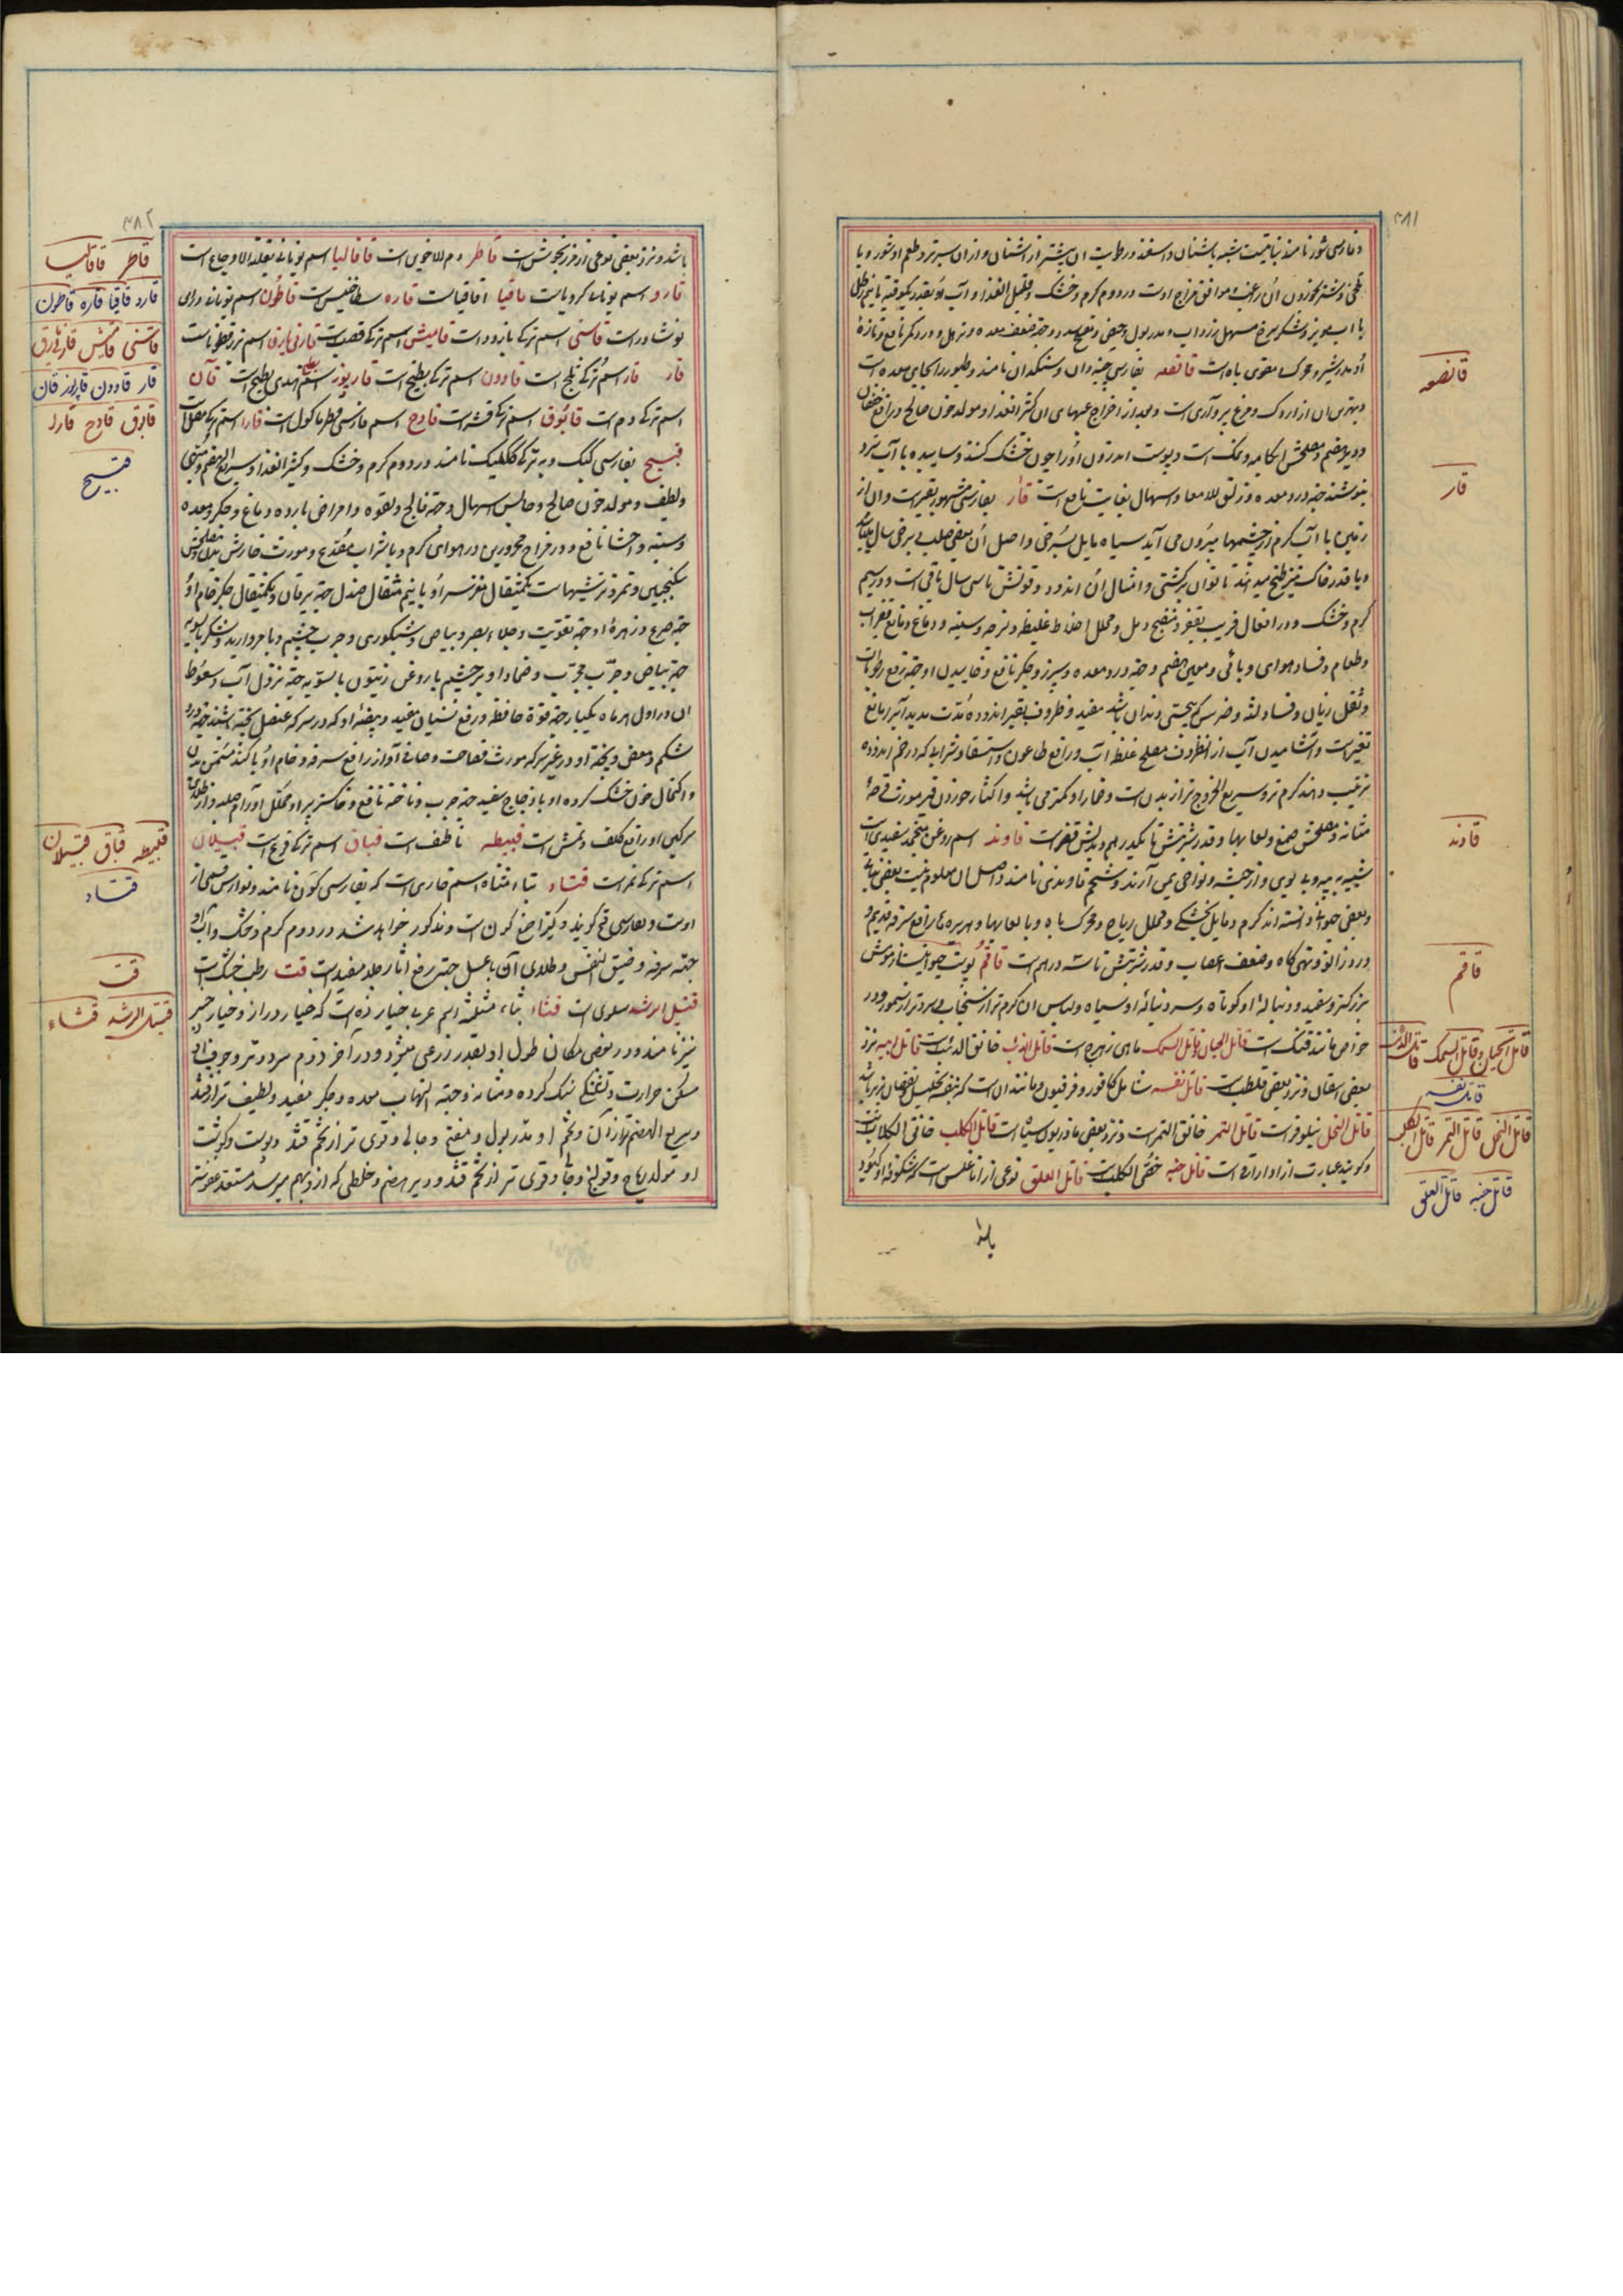 ۴۸۱
و فارسی شور نامند نباتیست شبیه باشنان و استفند و رطوبت ان بیشتر از اشنان و از ان سبزتر و طعم او شور و با
تلخی و شتر بخوردن ان راغب و موافق مزاج اوست در دوم گرم و خشک و قلیل الغذا و آب او بقدر یکوقیه یا نیم رطل
با اب مویز و شکر سرخ مسهل زرداب و مدر بول و حیض و مفتح سدد و جهة ضعف معده و درد کمر نافع و تازهٔ
او مدر شیر و محرک و مقوی باه است قانصه بفارسی چینه دان و سنکدان نامند و طیور را بجای معده است
و بهترین ان از اردک و مرغ پرواری است و بعد از اخراج غشاهای ان کثیر الغذا و مولد خون صالح و رافع خفقان
و دیر هضم و مصلحش ابکامه و نمک است و پوست اندرون او را چون خشک کنند و ساییده با آب سرد
بنوشند جهة درد معده و زلق الامعا و اسهال بغایت نافع است قار بفارسی مشهور بقیر است و ان از
زمین با آب گرم از چشمها بیرون می آید سیاه مایل بسرخی و اصل آن
و با قدر خاک نیز طبخ میدهند تا توان بر کشتی و امثال ان اندود و قوتش تا سی سال باقی است و در سیم
گرم و خشک و در افعال قریب بقفر و منضج و محلل اخلاط غلیظه و
و طعام و فساد هوای وبائی و معین هضم و جهة درد معده و سپرز و جگر نافع و خاییدن او جهة رفع رطوبات
و ثقل زبان و فساد لثه و ضرس و سستی دندان باشد مفید و ظروف بقیر اندوده مدت مدید آب را مانع
تغیر است و آشامیدن آب از انظروف مصلح غلظ آب و رافع طاعون و استسقا و شرابی که در خم اندوده
ترتیب دهند گرم تر و سریع الخروج تر از بدن است و خمار او کمتر می باشد و اکثار خوردن قیر مورث قرحهٔ
مثانه و مصلحش صمغ و لعابها و قدر شربتش تا یکدرهم و بدلش قفر است قاوند اسم روغن منجمد سفیدی است
شبیه به پیه و بی بوی و از حبشه و نواحی یمن آرند و شحم قاوندی نامند و اصل ان معلوم نیست بعضی نباتی
و بعضی حیوانی دانسته اند گرم و مایل بخشکی و محلل ریاح و محرک باه و با لعابها و هریره ها رافع سرفه قدیم و
درد زانو و تهی گاه و ضعف اعصاب و قدر شربتش تا سه درهم است قاقم پوست حیوانیست از موش
بزرگتر و سفید و دنباله او کوتاه و سر دنباله او سیاه و لباس ان گرم تر از سنجاب و سردتر از سمور و در
خواص مانند فنک است قاتل الحیتان و قاتل السمک ماهی زهره است قاتل الذئب خانق الذئب است قاتل ابیه نزد
بعضی اسقال و نزد بعضی قطلب است قاتل نفسه شامل کافور و فرفیون و مانند ان است که بنفسه تحلیل و نقصان پذیر باشد
قاتل النحل نیلوفر است قاتل النمر خانق النمر است و نزد بعضی ماذریون سیاه است قاتل الکلب خانق الکلاب است
و گویند عبارت از اداراقی است قاتل جنبه خصی الکلب است قاتل العلق نوعی از اناغلس است که شکوفه او کبود
قانصه
قار
قاوند
قاقم
قاتل الحیتان و قاتل السمک قاتل الذئب
قاتل نفسه
قاتل النحل قاتل النمر قاتل الکلب
قاتل جنبه قاتل العلق
باشد
۴۸۲
باشد و نزد بعضی نوعی از مرزنجوش است قاطر دم الاخوین است قاقالیا اسم یونانی بقلة الاوجاع است
قارو اسم یونانی کرویاست قاقیا اقاقیاست قاره سطاخیس است قاطون اسم یونانی دوای
نوشادر است قاسنی اسم ترکی بارزد است قامیش اسم ترکی قصب است قازنی یارقی اسم
قار اسم ترکی ثلج است قاوون اسم ترکی بطیخ است قارپوز اسم بطیخ هندی است قان
اسم ترکی دم است قابوق اسم ترکی قشر است قارچ اسم فارسی فطر ماکول است قارا اسم ترکی
قبیح بفارسی کبک و به ترکی ککلیک نامند در دوم گرم و خشک و کثیر الغذا و سریع الهضم و مبهی
و لطیف و مولد خون صالح و حابس اسهال و جهة فالج و لقوه و امراض بارده دماغ و جگر و معده
و سینه و احشا نافع و در مزاج محرورین در هوای گرم و با شراب مصدع و مورث خارش بدن و مصلحش
سکنجبین و تمر و ترشیها است یکمثقال مغز سر او با نیم مثقال صندل جهة یرقان و یکمثقال جگر خام او
جهة صرع و زهره او جهة تقویت و جلاء بصر و بیاض و شبکوری و جرب چشم و با مروارید و
جهة بیاض و جرب مجرب و ضماد او بر چشم با روغن زیتون بالسویه جهة نزول آب و سعوط
ان در اول هر ماه یکبار جهة قوة حافظه و رفع نسیان مفید و بیضه او که در سرکه عنصل پخته باشند جهة درد
شکم و مغص و پخته او در غیر سرکه مورث فصاحت و صافی آواز و رافع سرفه و خام او
و اکتحال خون خشک کرده او با زجاج سفید جهة جرب و ناخنه نافع و خاکستر پر او محلل اورام صلبه و از
سرکین او رافع کلف و نمش است قبیطه ناطف است قباق اسم ترکی قرع است قبسیلان
اسم ترکی تمر است قتاد بتاء مثناه اسم خاری است که بفارسی کون نامند و نوارس قسمی از
اوست و بفارسی کوبیند و کتیرا صمغ کون است و مذکور خواهد شد در دوم گرم و خشک و آب او
جهة سرفه و ضیق النفس و طلای آن با عسل جهة رفع اثار جلد مفید است قت رطب خشک است
قتیل الرشد سلوی است قثاء بثاء مثلثه اسم عربی خیار زه است که خیار دراز و خیار چنبر
نیز نامند و در بعضی مکان طول او بقدر زرعی میشود و در آخر دوم سرد و تر و جوف او
مسکن حرارت و تشنگی سنک گرده و مثانه و جهة التهاب معده و جگر مفید و لطیف تر از قثد
و سریع الهضم تر از آن و تخم او مدر بول و مفتح و جالی و قوی تر از تخم قثد و پوست و گوشت
او مولد ریاح و قولنج و جالی و قوی تر از تخم قثد و دیر هضم و خلطی که ازو بهم میرسد مستعد عفونت
قاطر قاقالیا
قارو قاقیا قاره قاطون
قاسنی قامیش قازنی یارقی
قار قاوون قارپوز قان
قابوق قارچ قارا
قبیح
قبیطه قباق قبسیلان
قتاد
قت
قتیل الرشد قثاء